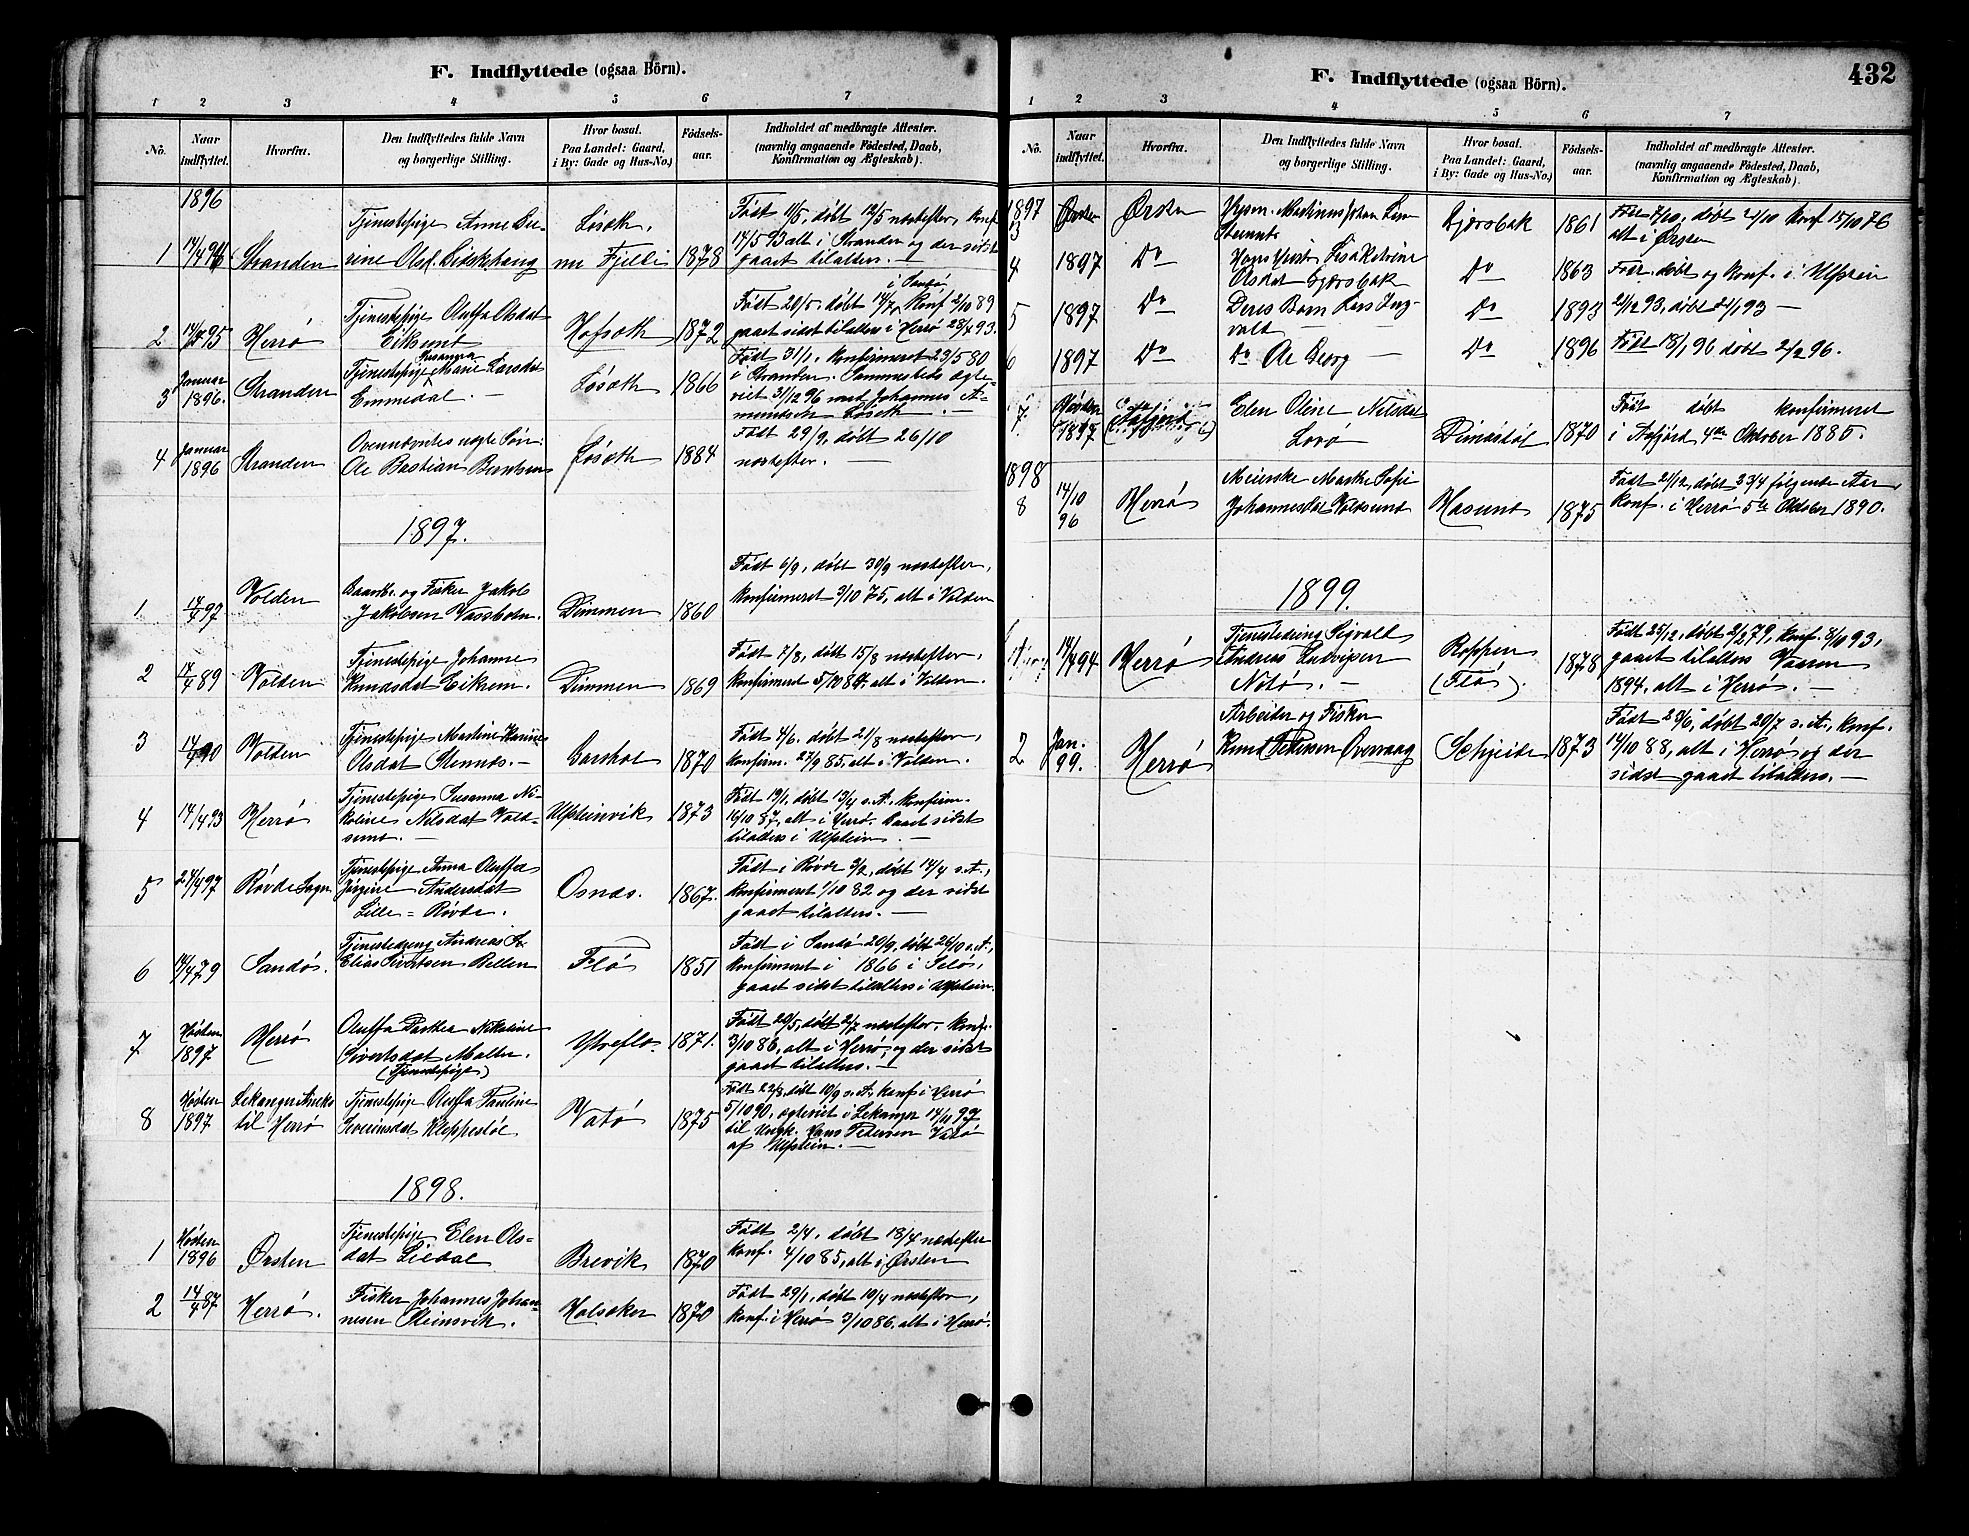 F. Indflyttede (ogsaa Börn).
1 2 3 4 5 6 7
No.
Naar indflyttet.
Hvorfra.
Den Indflyttedes fulde Navn
og borgerlige Stilling.
Hvor bosat.
Paa Landet: Gaard,
i By: Gade og Hus-No.)
Fødsels-
aar.
Indholdet af medbragte Attester.
(navnlig angaaende Födested, Daab,
Konfirmation og Ægteskab).
1896
Tjenestepige Anne
1 Stranden rine Olsd. 1878
Født 11/5, døbt 12/5 næstefter, konf.
14/5 93 alt i Stranden og der sidst
gaaet tilalters. —
i Sandø,
2 Herrø
Tjenestepige Oluffa Olsdat
Eiksund
Hofsæth 1872
Født 20/5, døbt 14/7, konf. 2/10 89
gaaet sidst tilalters i Herrø 28/4 93.
3 Januar
1896. Stranden
Susanna
Tjenestepige Marie Larsdat
Emmedal. —
Løsæth 1866
Født 31/1, konfirmeret 23/5 80
i Stranden. Sammesteds ægte-
viet 31/12 96 med Johannes A-
mundsen Løsæth. —
4 Januar
1896 Stranden
Ovennævntes uægte Søn:
Ole Bastian Berntsen
Løsæth 1884
Født 29/9, døbt 26/10
næstefter. —
1897.
1 Volden
Baandbr. og Fisker Jakob
Jakobsen Vassbotn.
Dimmen 1860
Født 6/9, døbt 30/9 næstefter,
konfirmeret 3/10 75, alt i Volden
2 14/4 89 Volden
Tjenestepige Johanne
Knudsdat Eikrem.
Dimmen 1869
Født 7/8, døbt 15/8 næstefter,
konfirmeret 5/10 84, alt i Volden.
3 14/4 90 Volden
Tjenestepige Martine Karine
Olsdat Stennes. —
Garshol 1870
Født 4/6, døbt 21/8 næstefter,
konfirm. 27/9 85, alt i Volden.
4 14/4 93 Herrø
Tjenestepige Susanna Ni-
koline Nilsdat Vold-
sund. —
Ulfsteinvik 1873
Født 19/1, døbt 13/4 s.A., konfirm.
16/10 87, alt i Herrø. Gaaet sidst
tilalters i Ulfstein. —
5 24/4 97 Røvde Sogn
Tjenestepige Anna Oluffa
Jørgine Andersdat
Lille=Røvde.
Osnes. 1867.
Født i Røvde 3/2, døbt 14/4 s.A.,
konfirmeret 1/10 82 og der sidst
gaaet tilalters. —
6 14/4 79 Sandø.
Tjenestedreng Andreas
Elias Sivertsen
Flø 1851
Født i Sandø 20/9, døbt 26/10 s.A.,
konfirmeret i 1866 i
gaaet sidst tilalters i Ulfstein.
7 Høsten
1897 Herrø
Oluffa Dorthea Nikoline
Sivertsdat Molter.
(Tjenestepige)
Ytreflø. 1871.
Født 20/5, døbt 2/7 næstefter, konf.
3/10 86, alt i Herrø, og der sidst
gaaet tilalters. —
8 Høsten
1897 Lekanger
til Herrø
Tjenestepige Oluffa Pauline
Severinsdat Kloppestøl
Vatø 1875
Født 22/8, døbt 10/9 s.A. konf. i Herrø
5/10 90, ægteviet i Lekanger 14/11 97
til Ungk. Hans Petersen Vatø
af Ulfstein. —
1898.
1 Høsten
1896 Ørsten
Tjenestepige Elen Ols-
dat Liedal
Brevik 1870
Født 2/4, døbt 18/4 næstefter
konf. 4/10 85, alt i Ørsten
2 14/4 87 Herrø.
Fisker Johannes Johan-
nesen Kleinsvik.
Holsøker 1870
Født 29/1, døbt 10/4 næstefter,
konf. i Herrø 3/10 86, alt i Herrø.
F. Indflyttede (ogsaa Börn).
432
1 2 3 4 5 6 7
No.
Naar indflyttet.
Hvorfra.
Den Indflyttedes fulde Navn
og borgerlige Stilling.
Hvor bosat.
Paa Landet: Gaard,
i By: Gade og Hus-No.)
Fødsels-
aar.
Indholdet af medbragte Attester.
(navnlig angaaende Födested, Daab,
Konfirmation og Ægteskab).
1897
3 Ørsten
Martinus Johan
Gjærsbak 1861
alt i Ørsten
4 1897 Do
Hans Hustr. Lisa Katrine
Olsdat Gjærsbak
Do 1863
Født, døbt og konf. i Ulfstein
5 1897 Do
Deres Barn Lars Ing-
vald
Do 1893
6 1897 Do
Do Ole Georg —
Do 1896
Født 18/1 96 døbt 2/2 96.
7 Høsten
1897
Elen Oline Nilsdat
Lovø
Dimastøl 1870
Født døbt konfirmeret
i Aafjord 4de Oktober 1885.
1898
8 14/10
96 Herrø
Meierske Marthe Sofie
Johannesdat Voldsund
Hasund 1875
Født 21/12, døbt 23/4 følgende Aar,
konf. i Herrø 5te Oktober 1890.
1899.
14/4 94 Herrø
Tjenestedreng Sigvald
Andreas Ludvigsen
Notø. —
Roppen
(Flø). 1878
Født 25/12, døbt 2/2 79, konf. 8/10 93,
gaaet tilalters Vaaren
1894, alt i Herrø. —
2 Jan.
99. Herrø
Arbeider og Fisker
Knud Pedersen Øvraag
Sætheide 1873
Født 23/6, døbt 20/7 s.A., konf.
14/10 88, alt i Herrø og der
sidst gaaet tilalters. —